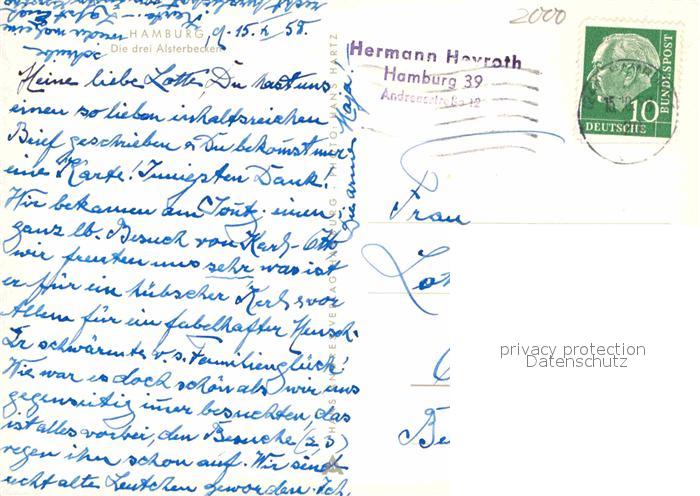 HAMBURG
Die drei Alsterbecken
9. 15.X 58.
Meine liebe Lotte, Du hast uns
einen so lieben inhaltsreichen
Brief geschrieben & Du bekomst nur
eine Karte! Innigsten Dank!
Wir bekamen am einen
ganz lb. Besuch von Karl-Otto
wir freuten uns sehr was ist
er für ein hübscher Kerl & vor
Allem für ein fabelhafter Mensch.
Er schwärmte v. s. Familienglück!
Wie war es doch schön als wir uns
gegenseitig imer besuchten, das
ist alles vorbei, den Besuche (z. 3)
regen ihn schon auf. Wir sind
recht alte Leutchen geworden. Ich,
Die arme Maja!
HANS HARTZ
2000
Hermann Heyroth
Hamburg 39
Andreasstraße 12
10
DEUTSCHE
BUNDESPOST
Frau
privacy protection
Datenschutz